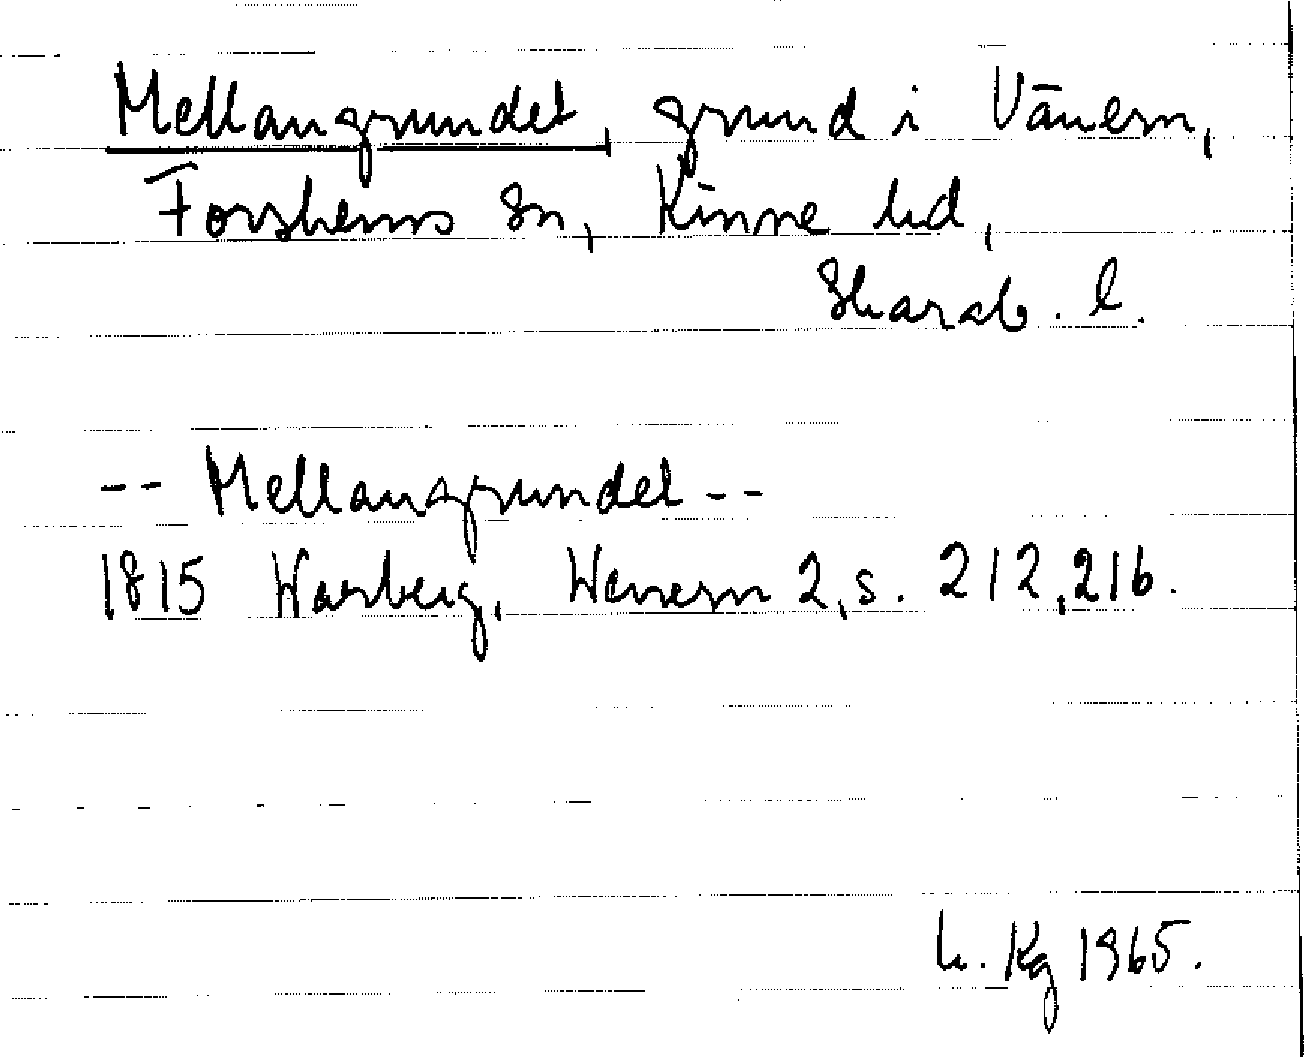 Mellangrundet, grund i Vänern,
Forshems sn, Kinne hd,
Skarab. l.
-- Mellangrundet --
1815 Warberg, Wenern 2, s. 212, 216.
h. Kg 1965.